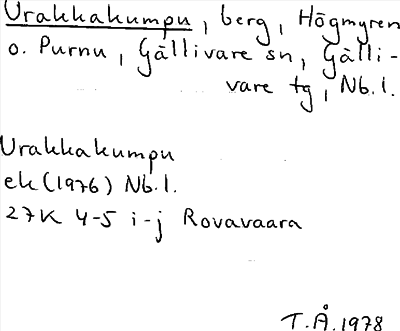 Urakkakumpu, berg, Högmyren
o. Purnu, Gällivare sn, Gälli-
vare tg, Nb.l.
Urakkakumpu
ek (1976) Nb.l.
27K 4-5 i-j Rovavaara
T.Å. 1978